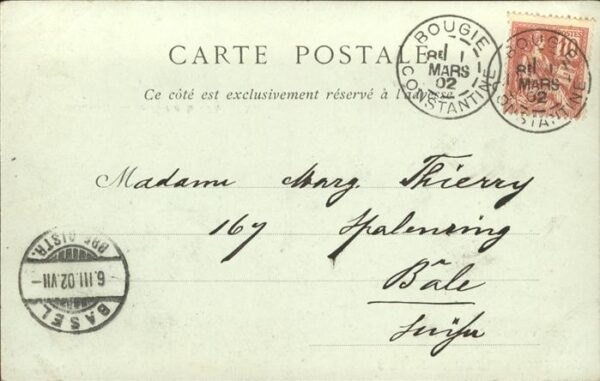 CARTE POSTALE
Ce côté est exclusivement réservé à l'adresse
BOUGIE
1
MARS
02
CONSTANTINE
BOUGIE
1
MARS
02
CONSTANTINE
10
POSTES
Madame Marg. Thierry
167 Spalenring
Bâle
BASEL
6.III.02.VII-
BRF. DISTR.